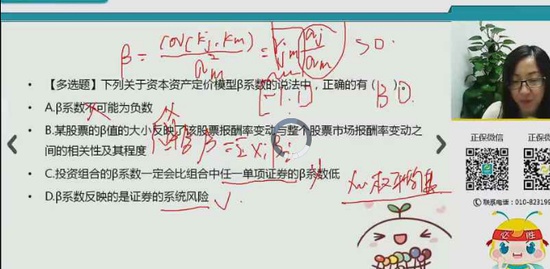 β = cov(Kj,Km) / σ²m = rjm σj/σm >0.
[-1.1]
【多选题】下列关于资本资产定价模型β系数的说法中，正确的有（ ）。
B D.
A.β系数不可能为负数
B.某股票的β值的大小反映了该股票报酬率变动与整个股票市场报酬率变动之
间的相关性及其程度
β = Σxiβi
C.投资组合的β系数一定会比组合中任一单项证券的β系数低
D.β系数反映的是证券的系统风险
正保微信
正保微信
联系电话：010-823199
必胜